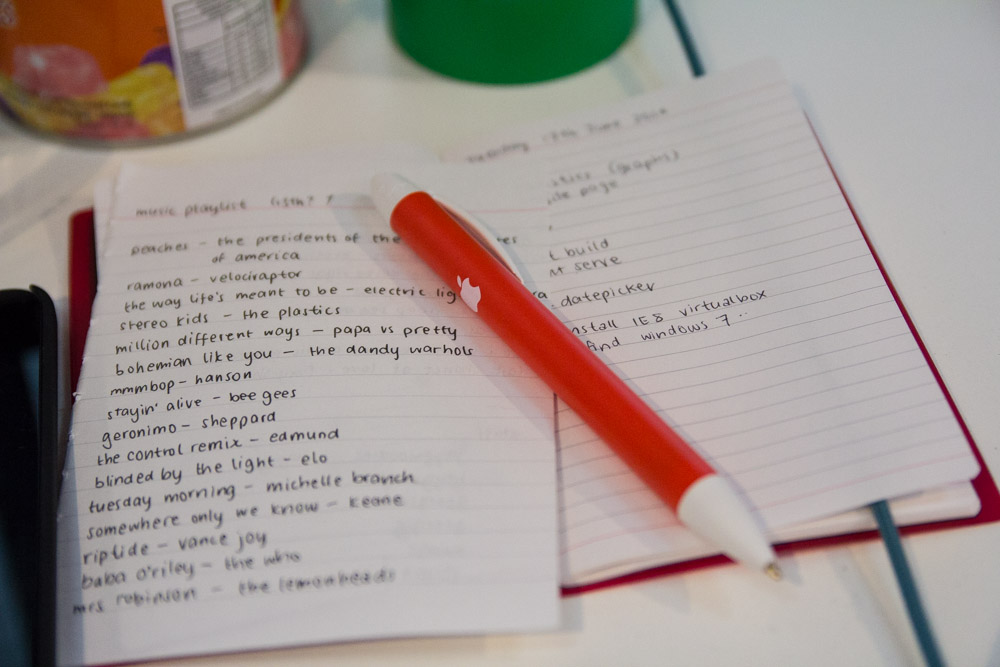 music playlist
peaches - the presidents of the
of america
ramona - velociraptor
the way life's meant to be - electric lig
stereo kids - the plastics
million different ways - papa vs pretty
bohemian like you - the dandy warhols
mmmbop - hanson
stayin' alive - bee gees
geronimo - sheppard
the control remix - edmund
blinded by the light - elo
tuesday morning - michelle branch
somewhere only we know - keane
riptide - vance joy
baba o'riley - the who
mrs robinson - the lemonheads
(graphs)
page
build
serve
datepicker
install IE8 virtualbox
find windows 7